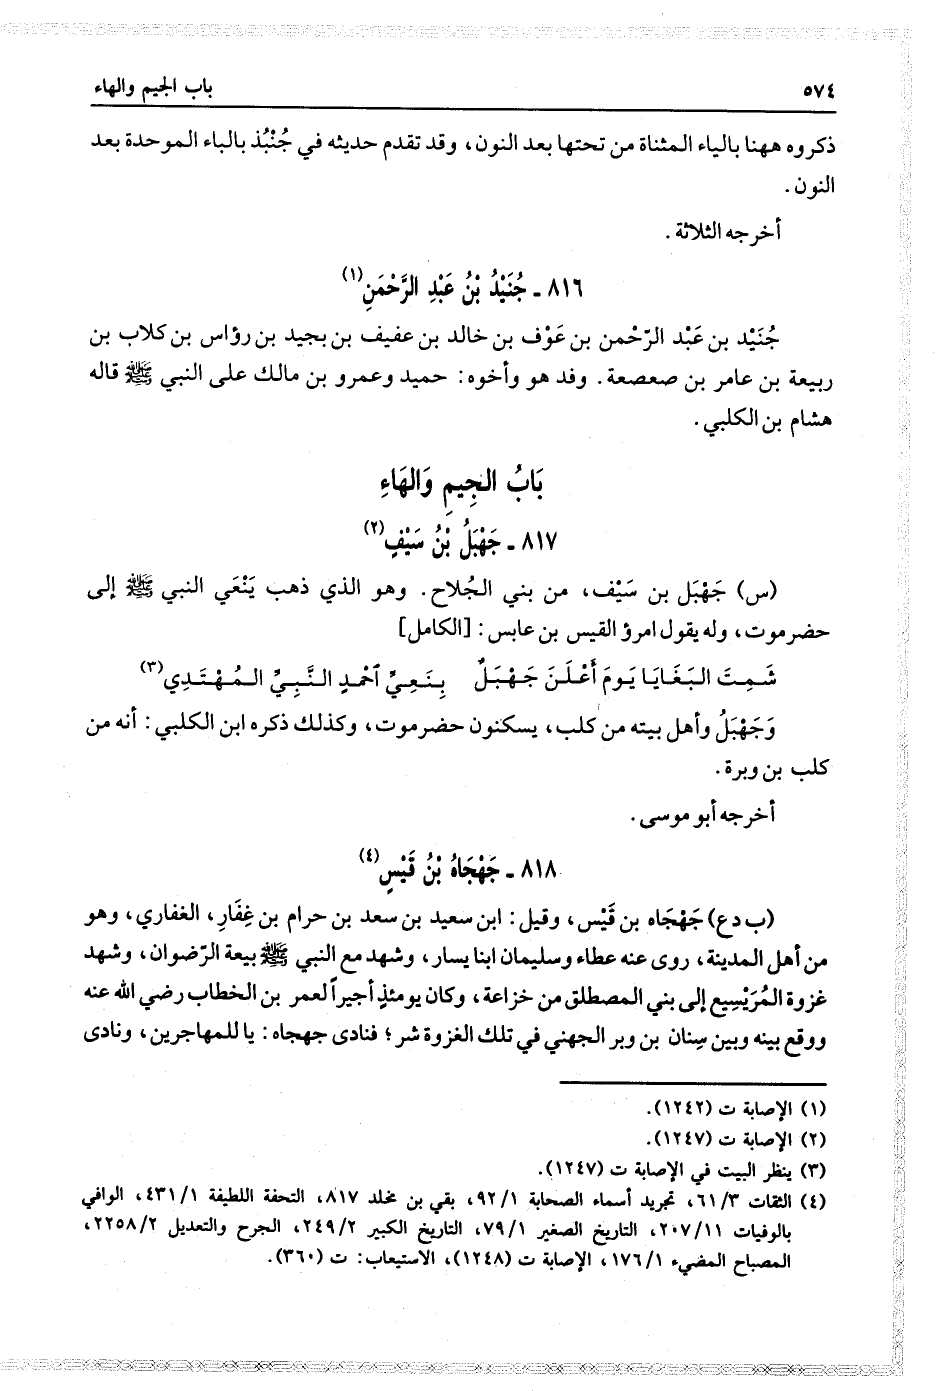 ٥٧٤ باب الجيم والهاء
ذكروه ههنا بالياء المثناة من تحتها بعد النون، وقد تقدم حديثه في جُنْبُذ بالباء الموحدة بعد
النون.
أخرجه الثلاثة.
٨١٦ ـ جُنَيْدُ بْنُ عَبْدِ الرَّحْمَنِ(١)
جُنَيْد بن عَبْد الرّحْمن بن عَوْف بن خالد بن عفيف بن بجيد بن رؤاس بن كلاب بن
ربيعة بن عامر بن صعصعة. وفد هو وأخوه: حميد وعمرو بن مالك على النبي ﷺ قاله
هشام بن الكلبي.
بَابُ الجِيمِ وَالهَاءِ
٨١٧ ـ جَهْبَلُ بْنُ سَيْفٍ(٢)
(س) جَهْبَل بن سَيْف، من بني الجُلاح. وهو الذي ذهب يَنْعَي النبي ﷺ إلى
حضرموت، وله يقول امرؤ القيس بن عابس: [الكامل]
شَمِتَ البَغَايَا يَومَ أَعْلَنَ جَهْبَلٌ بِنَعِيِّ أحْمدِ النَّبِيِّ المُهْتَدِي(٣)
وَجَهْبَلُ وأهل بيته من كلب، يسكنون حضرموت، وكذلك ذكره ابن الكلبي: أنه من
كلب بن وبرة.
أخرجه أبو موسى.
٨١٨ ـ جَهْجَاهُ بْنُ قَيْسٍ(٤)
(ب د ع) جَهْجَاه بن قَيْس، وقيل: ابن سعيد بن سعد بن حرام بن غِفَارِ، الغفاري، وهو
من أهل المدينة، روى عنه عطاء وسليمان ابنا يسار، وشهد مع النبي ﷺ بيعة الرّضوان، وشهد
غزوة المُرَيْسِيع إلى بني المصطلق من خزاعة، وكان يومئذٍ أجيراً لعمر بن الخطاب رضي الله عنه
ووقع بينه وبين سِنان بن وبر الجهني في تلك الغزوة شر؛ فنادى جهجاه: يا للمهاجرين، ونادى
(١) الإصابة ت (١٢٤٢).
(٢) الإصابة ت (١٢٤٧).
(٣) ينظر البيت في الإصابة ت (١٢٤٧).
(٤) الثقات ٦١/٣، تجريد أسماء الصحابة ٩٢/١، بقي بن مخلد ٨١٧، التحفة اللطيفة ٤٣١/١، الوافي
بالوفيات ٢٠٧/١١، التاريخ الصغير ٧٩/١، التاريخ الكبير ٢٤٩/٢، الجرح والتعديل ٢٢٥٨/٢،
المصباح المضيء ١٧٦/١، الإصابة ت (١٢٤٨)، الاستيعاب: ت (٣٦٠).